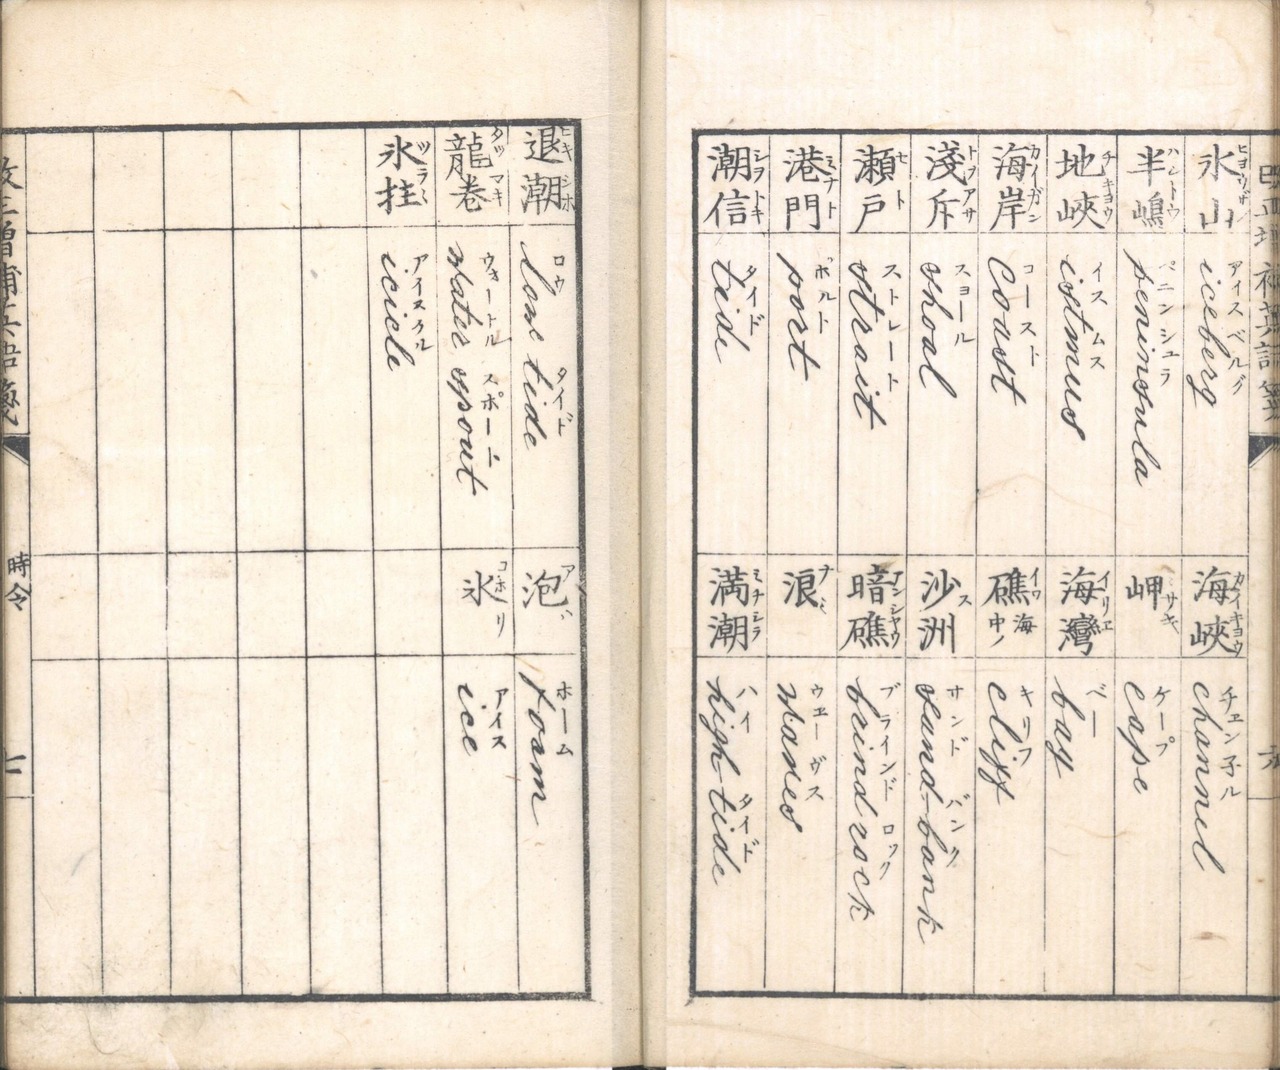 氷山 ヒヨウザン
iceberg アイスベルグ
海峽 カイキヨウ
channel チエン子ル
半嶋 ハントウ
peninsula ペニンシュラ
岬 ミサキ
cape ケープ
地峽 チキヨウ
istmus イスムス
海灣 イリエ
bay ベー
海岸 カイガン
coast コースト
礁 海中ノイワ
cliff キリフ
淺斥 トフアサ
shoal スヨール
沙洲 ス
sand-bank サンドバンク
瀬戸 セト
strait ストレート
暗礁 アンシヤウ
brind rock ブラインド ロック
港門 ミナト
port ポルト
浪 ナミ
waves ウエーヴス
潮信 シフトキ
tide タイド
満潮 ミチシヲ
high-tide ハイ タイド
退潮 ヒキシホ
low tide ロウ タイド
泡 アハ
foam ホーム
龍卷 タツマキ
water spout ウォートル スポート
氷 コホリ
ice アイス
氷柱 ツララ
icicle アイスクル
時令
七